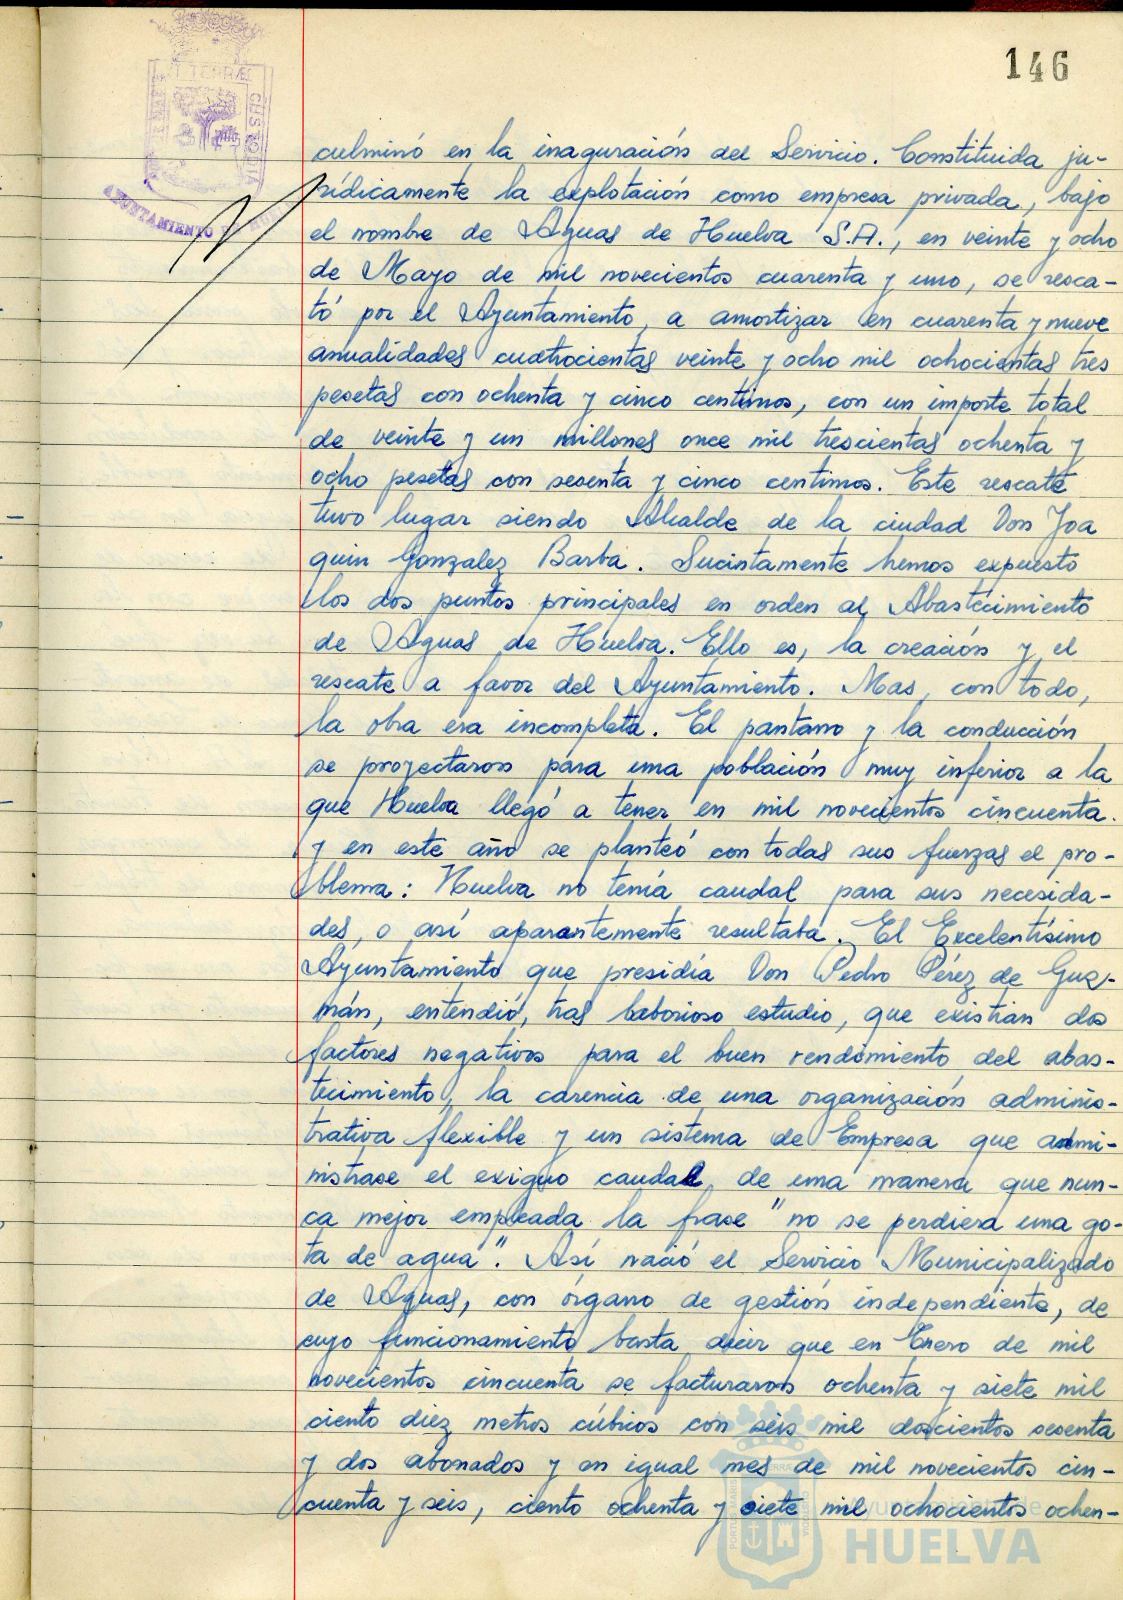 146
AYUNTAMIENTO DE HUELVA
culminó en la inaguración del Servicio. Constituida ju-
rídicamente la explotación como empresa privada, bajo
el nombre de Aguas de Huelva S.A., en veinte y ocho
de Mayo de mil novecientos cuarenta y uno, se resca-
tó por el Ayuntamiento, a amortizar en cuarenta y nueve
anualidades cuatrocientas veinte y ocho mil ochocientas tres
pesetas con ochenta y cinco centimos, con un importe total
de veinte y un millones once mil trescientas ochenta y
ocho pesetas con sesenta y cinco centimos. Este rescate
tuvo lugar siendo Alcalde de la ciudad Don Joa
quin Gonzalez Barba. Sucintamente hemos expuesto
los dos puntos principales en orden al Abastecimiento
de Aguas de Huelva. Ello es, la creación y el
rescate a favor del Ayuntamiento. Mas, con todo,
la obra era incompleta. El pantano y la conducción
se proyectaron para una población muy inferior a la
que Huelva llegó a tener en mil novecientos cincuenta.
y en este año se planteó con todas sus fuerzas el pro-
blema: Huelva no tenía caudal para sus necesida-
des, o así aparantemente resultaba. El Excelentísimo
Ayuntamiento que presidía Don Pedro Pérez de Guz-
mán, entendió, tras laborioso estudio, que existían dos
factores negativos para el buen rendimiento del abas-
tecimiento, la carencia de una organización adminis-
trativa flexible y un sistema de Empresa que admi-
nistrase el exiguo caudal, de una manera que nun-
ca mejor empleada la frase "no se perdiera una go-
ta de agua". Así nació el Servicio Municipalizado
de Aguas, con órgano de gestión independiente, de
cuyo funcionamiento basta decir que en Enero de mil
novecientos cincuenta se facturaron ochenta y siete mil
ciento diez metros cúbicos con seis mil doscientos sesenta
y dos abonados y en igual mes de mil novecientos cin-
cuenta y seis, ciento ochenta y siete mil ochocientos ochen-
Ayuntamiento de
HUELVA